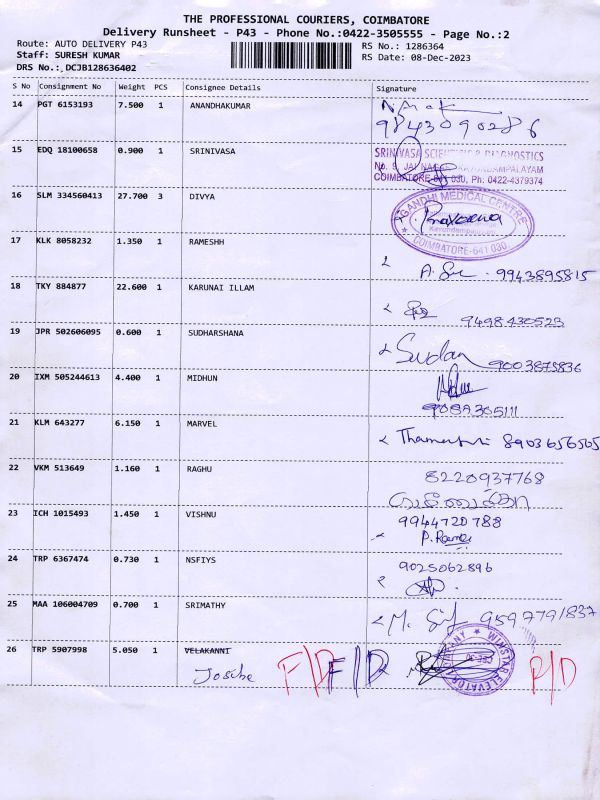 THE PROFESSIONAL COURIERS, COIMBATORE
Delivery Runsheet - P43 - Phone No.:0422-3505555 - Page No.:2
Route: AUTO DELIVERY P43 RS No.: 1286364
Staff: SURESH KUMAR RS Date: 08-Dec-2023
DRS No.: DCJB128636402
S No Consignment No Weight PCS Consignee Details Signature
14 PGT 6153193 7.500 1 ANANDHAKUMAR
9843090286
15 EDQ 18100658 0.900 1 SRINIVASA
SRINIVASA SCIENTIFIC & DIAGNOSTICS
COIMBATORE-641 030, Ph: 0422-4379374
16 SLM 334560413 27.700 3 DIVYA
GANDHI MEDICAL CENTRE
COIMBATORE-641 030.
17 KLK 8058232 1.350 1 RAMESHH
9943895815
18 TKY 884877 22.600 1 KARUNAI ILLAM
9498430523
19 JPR 502606095 0.600 1 SUDHARSHANA
Sudan 9003875836
20 IXM 505244613 4.400 1 MIDHUN
21 KLM 643277 6.150 1 MARVEL
8903656505
22 VKM 513649 1.160 1 RAGHU
8220937768
23 ICH 1015493 1.450 1 VISHNU
9944720788
24 TRP 6367474 0.730 1 NSFIYS
9025062896
25 MAA 106004709 0.700 1 SRIMATHY
9597791837
26 TRP 5907998 5.050 1 VELAKANNI
F/D F/D R/D